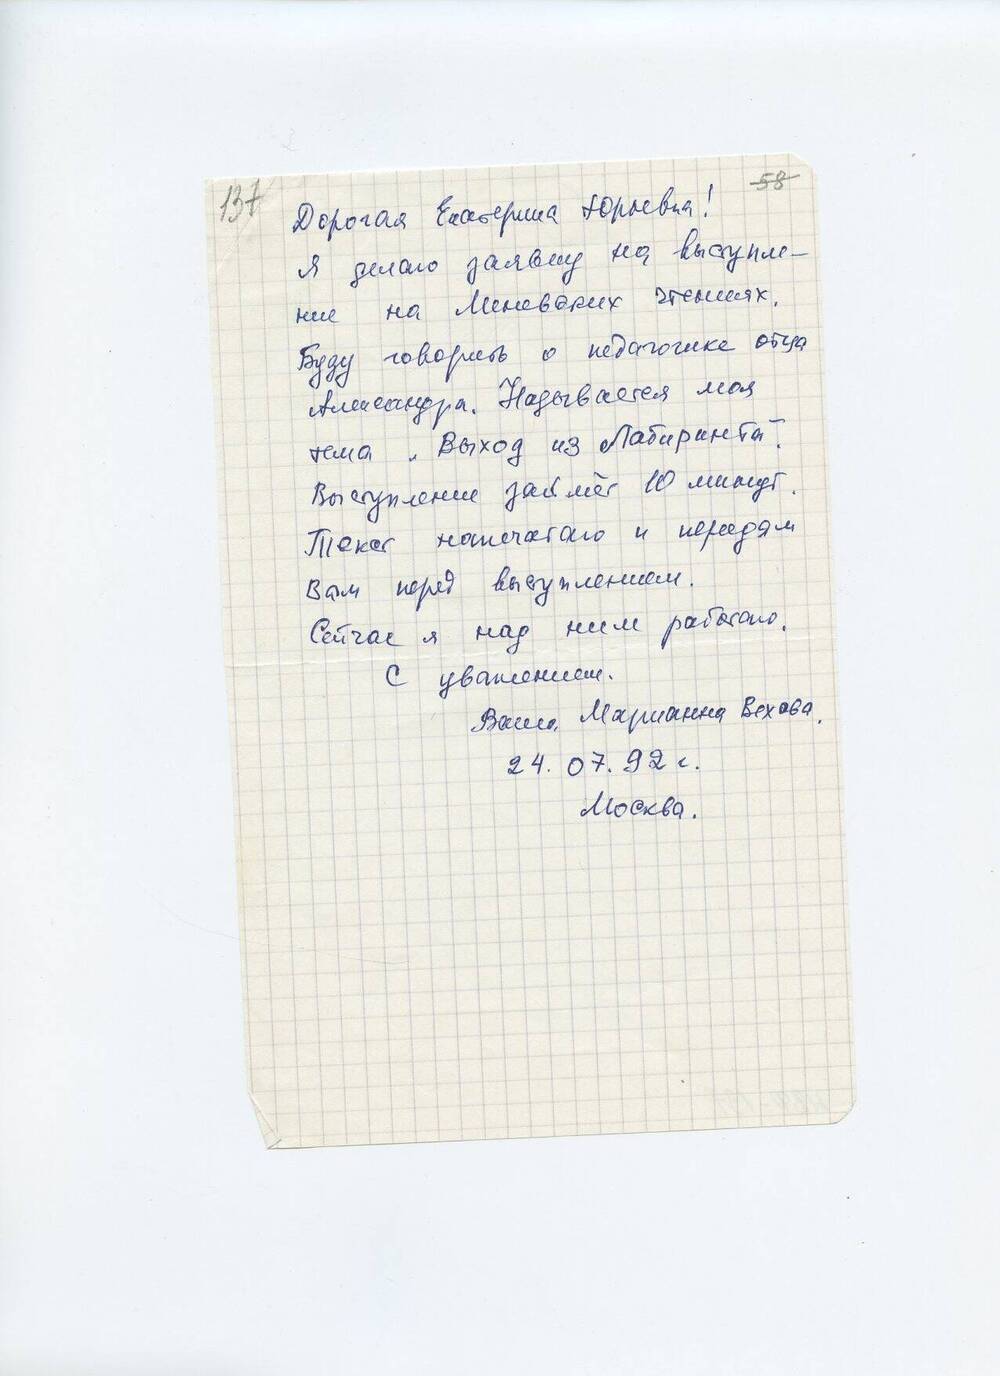 137
58
Дорогая Екатерина Юрьевна!
Я делаю заявку на выступле-
ние на Меневских чтениях.
Буду говорить о педагогике отца
Александра. Называется моя
тема „Выход из Лабиринта".
Выступление займёт 10 минут.
Текст напечатаю и передам
Вам перед выступлением.
Сейчас я над ним работаю.
С уважением.
Ваша Марианна Вехова.
24.07.92 г.
Москва.